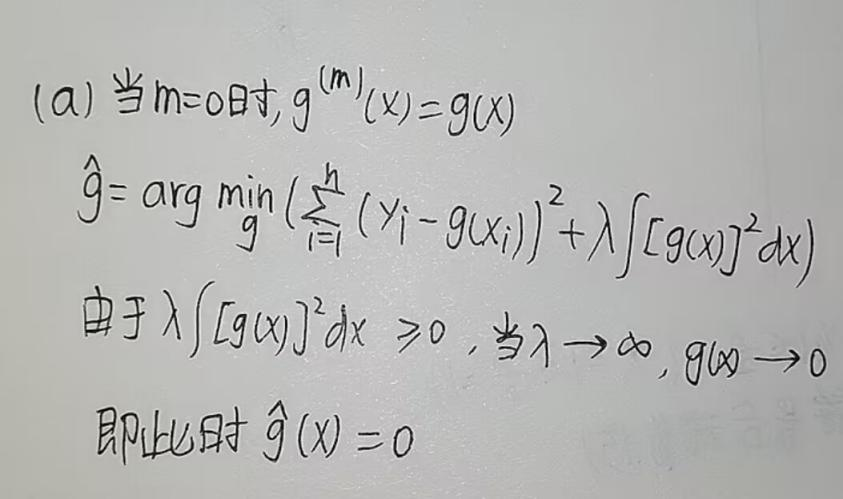 (a) 当m=0时, g^(m)(x)=g(x)
ĝ= arg min_g (∑_{i=1}^n (y_i-g(x_i))^2+λ∫[g(x)]^2dx)
由于 λ∫[g(x)]^2dx ≥0 , 当λ→∞, g(x)→0
即此时 ĝ(x)=0